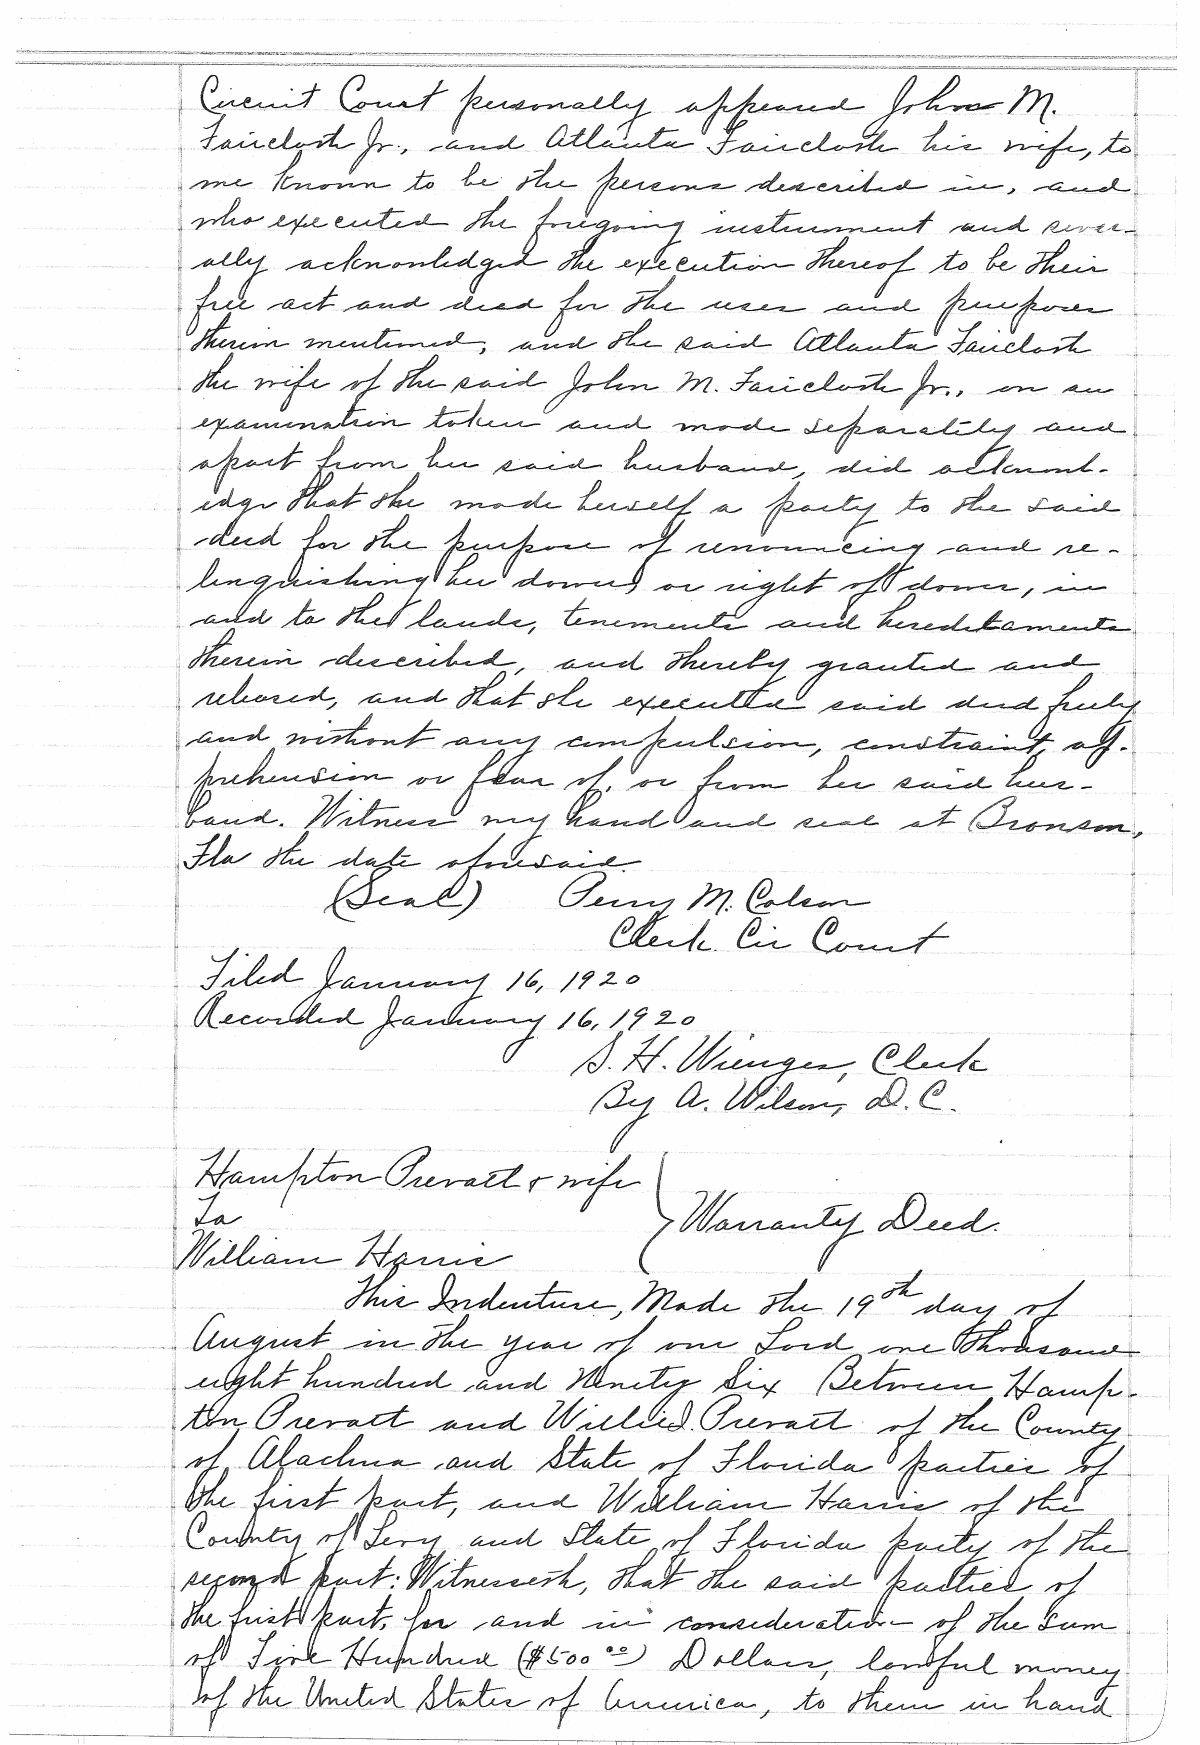 Circuit Court personally appeared John M.
Faircloth Jr., and Atlanta Faircloth his wife, to
me known to be the persons described in, and
who executed the foregoing instrument and sever-
ally acknowledged the execution thereof to be their
free act and deed for the uses and purposes
therein mentioned, and the said Atlanta Faircloth
the wife of the said John M. Faircloth Jr., on an
examination taken and made separately and
apart from her said husband, did acknowl-
edge that she made herself a party to the said
deed for the purpose of renouncing and re-
linquishing her dower, or right of dower, in
and to the lands, tenements and hereditaments
therein described, and thereby granted and
released, and that she executed said deed freely
and without any compulsion, constraint, ap-
prehension or fear of, or from her said hus-
band. Witness my hand and seal at Bronson,
Fla the date aforesaid.
(Seal) Perry M. Colson
Clerk Cir Court
Filed January 16, 1920
Recorded January 16, 1920
S. H. Wienges, Clerk
By A. Wilson, D.C.
Hampton Prevatt & wife
To
Warranty Deed.
William Harris
This Indenture, Made the 19th day of
August in the year of our Lord one thousand
eight hundred and Ninety Six Between Hamp-
ton Prevatt and Prevatt of the County
of Alachua and State of Florida parties of
the first part, and William Harris of the
County of Levy and State of Florida party of the
second part: Witnesseth, that the said parties of
the first part, for and in consideration of the sum
of Five Hundred ($500 00) Dollars, lawful money
of the United States of America, to them in hand